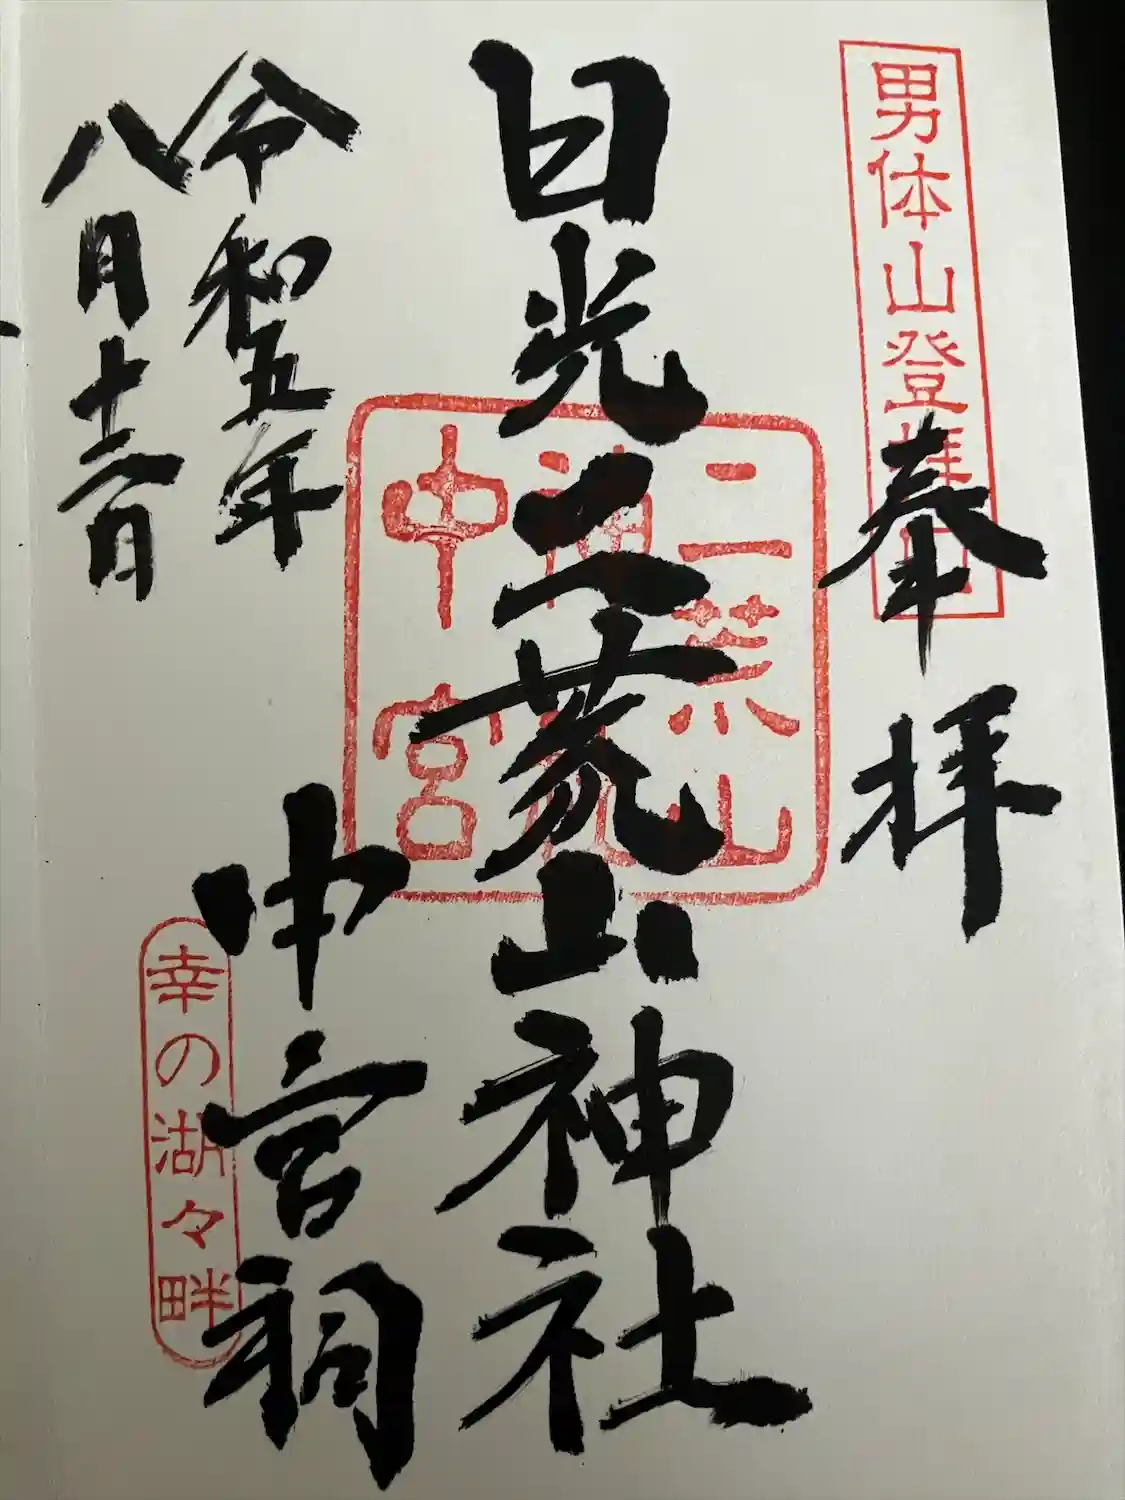 男体山登拝口
奉拝
二荒山
神
中宮
日光二荒山神社
中宮祠
幸の湖々畔
令和五年
八月十二日